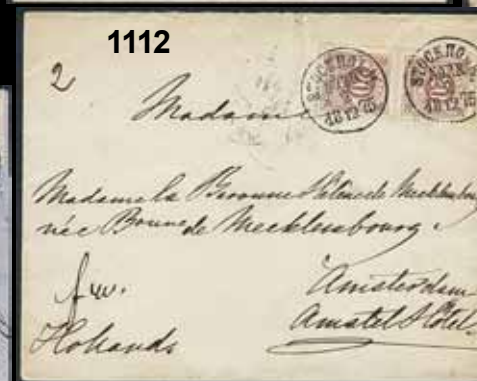 1112
2
STOCKHOLM 18 12 75
STOCKHOLM 18 12 75
Madame
Madame la Baronne de Mecklenbourg
née Bonne de Mecklenbourg.
Amsterdam
Amstel Hôtel
Hollande